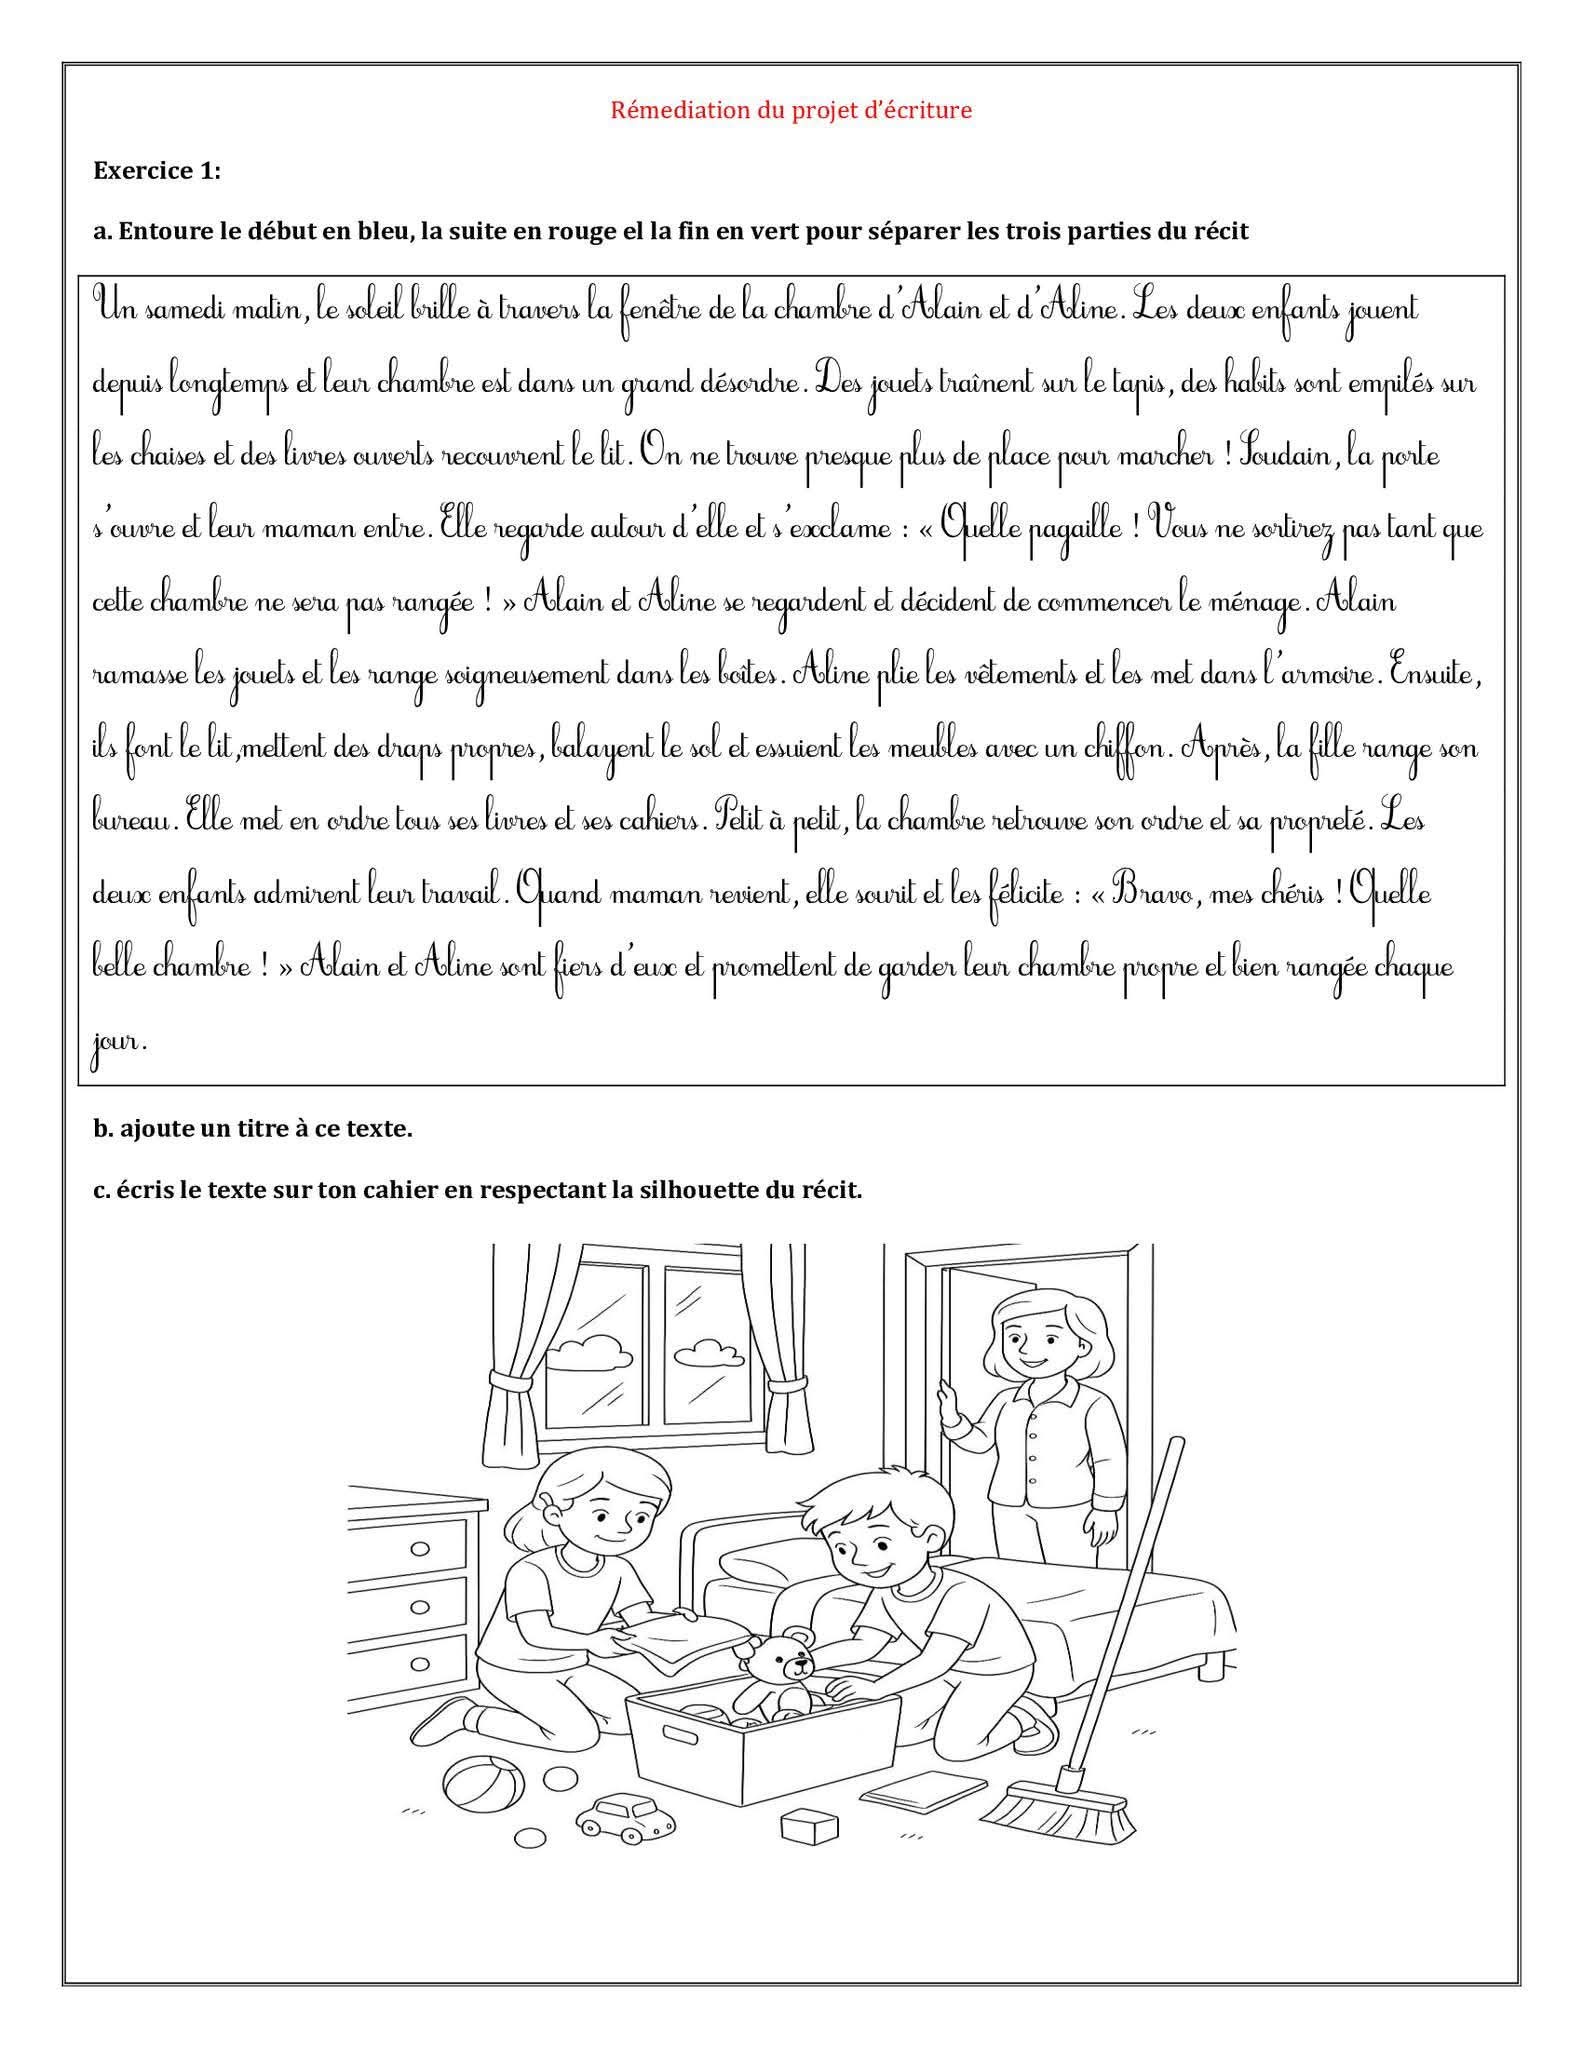 Rémediation du projet d’écriture
Exercice 1:
a. Entoure le début en bleu, la suite en rouge el la fin en vert pour séparer les trois parties du récit
Un samedi matin, le soleil brille à travers la fenêtre de la chambre d’Alain et d’Aline. Les deux enfants jouent
depuis longtemps et leur chambre est dans un grand désordre. Des jouets traînent sur le tapis, des habits sont empilés sur
les chaises et des livres ouverts recouvrent le lit. On ne trouve presque plus de place pour marcher ! Soudain, la porte
s’ouvre et leur maman entre. Elle regarde autour d’elle et s’exclame : « Quelle pagaille ! Vous ne sortirez pas tant que
cette chambre ne sera pas rangée ! » Alain et Aline se regardent et décident de commencer le ménage. Alain
ramasse les jouets et les range soigneusement dans les boîtes. Aline plie les vêtements et les met dans l’armoire. Ensuite,
ils font le lit,mettent des draps propres, balayent le sol et essuient les meubles avec un chiffon. Après, la fille range son
bureau. Elle met en ordre tous ses livres et ses cahiers. Petit à petit, la chambre retrouve son ordre et sa propreté. Les
deux enfants admirent leur travail. Quand maman revient, elle sourit et les félicite : « Bravo, mes chéris ! Quelle
belle chambre ! » Alain et Aline sont fiers d’eux et promettent de garder leur chambre propre et bien rangée chaque
jour.
b. ajoute un titre à ce texte.
c. écris le texte sur ton cahier en respectant la silhouette du récit.